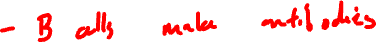 - B cells make antibodies